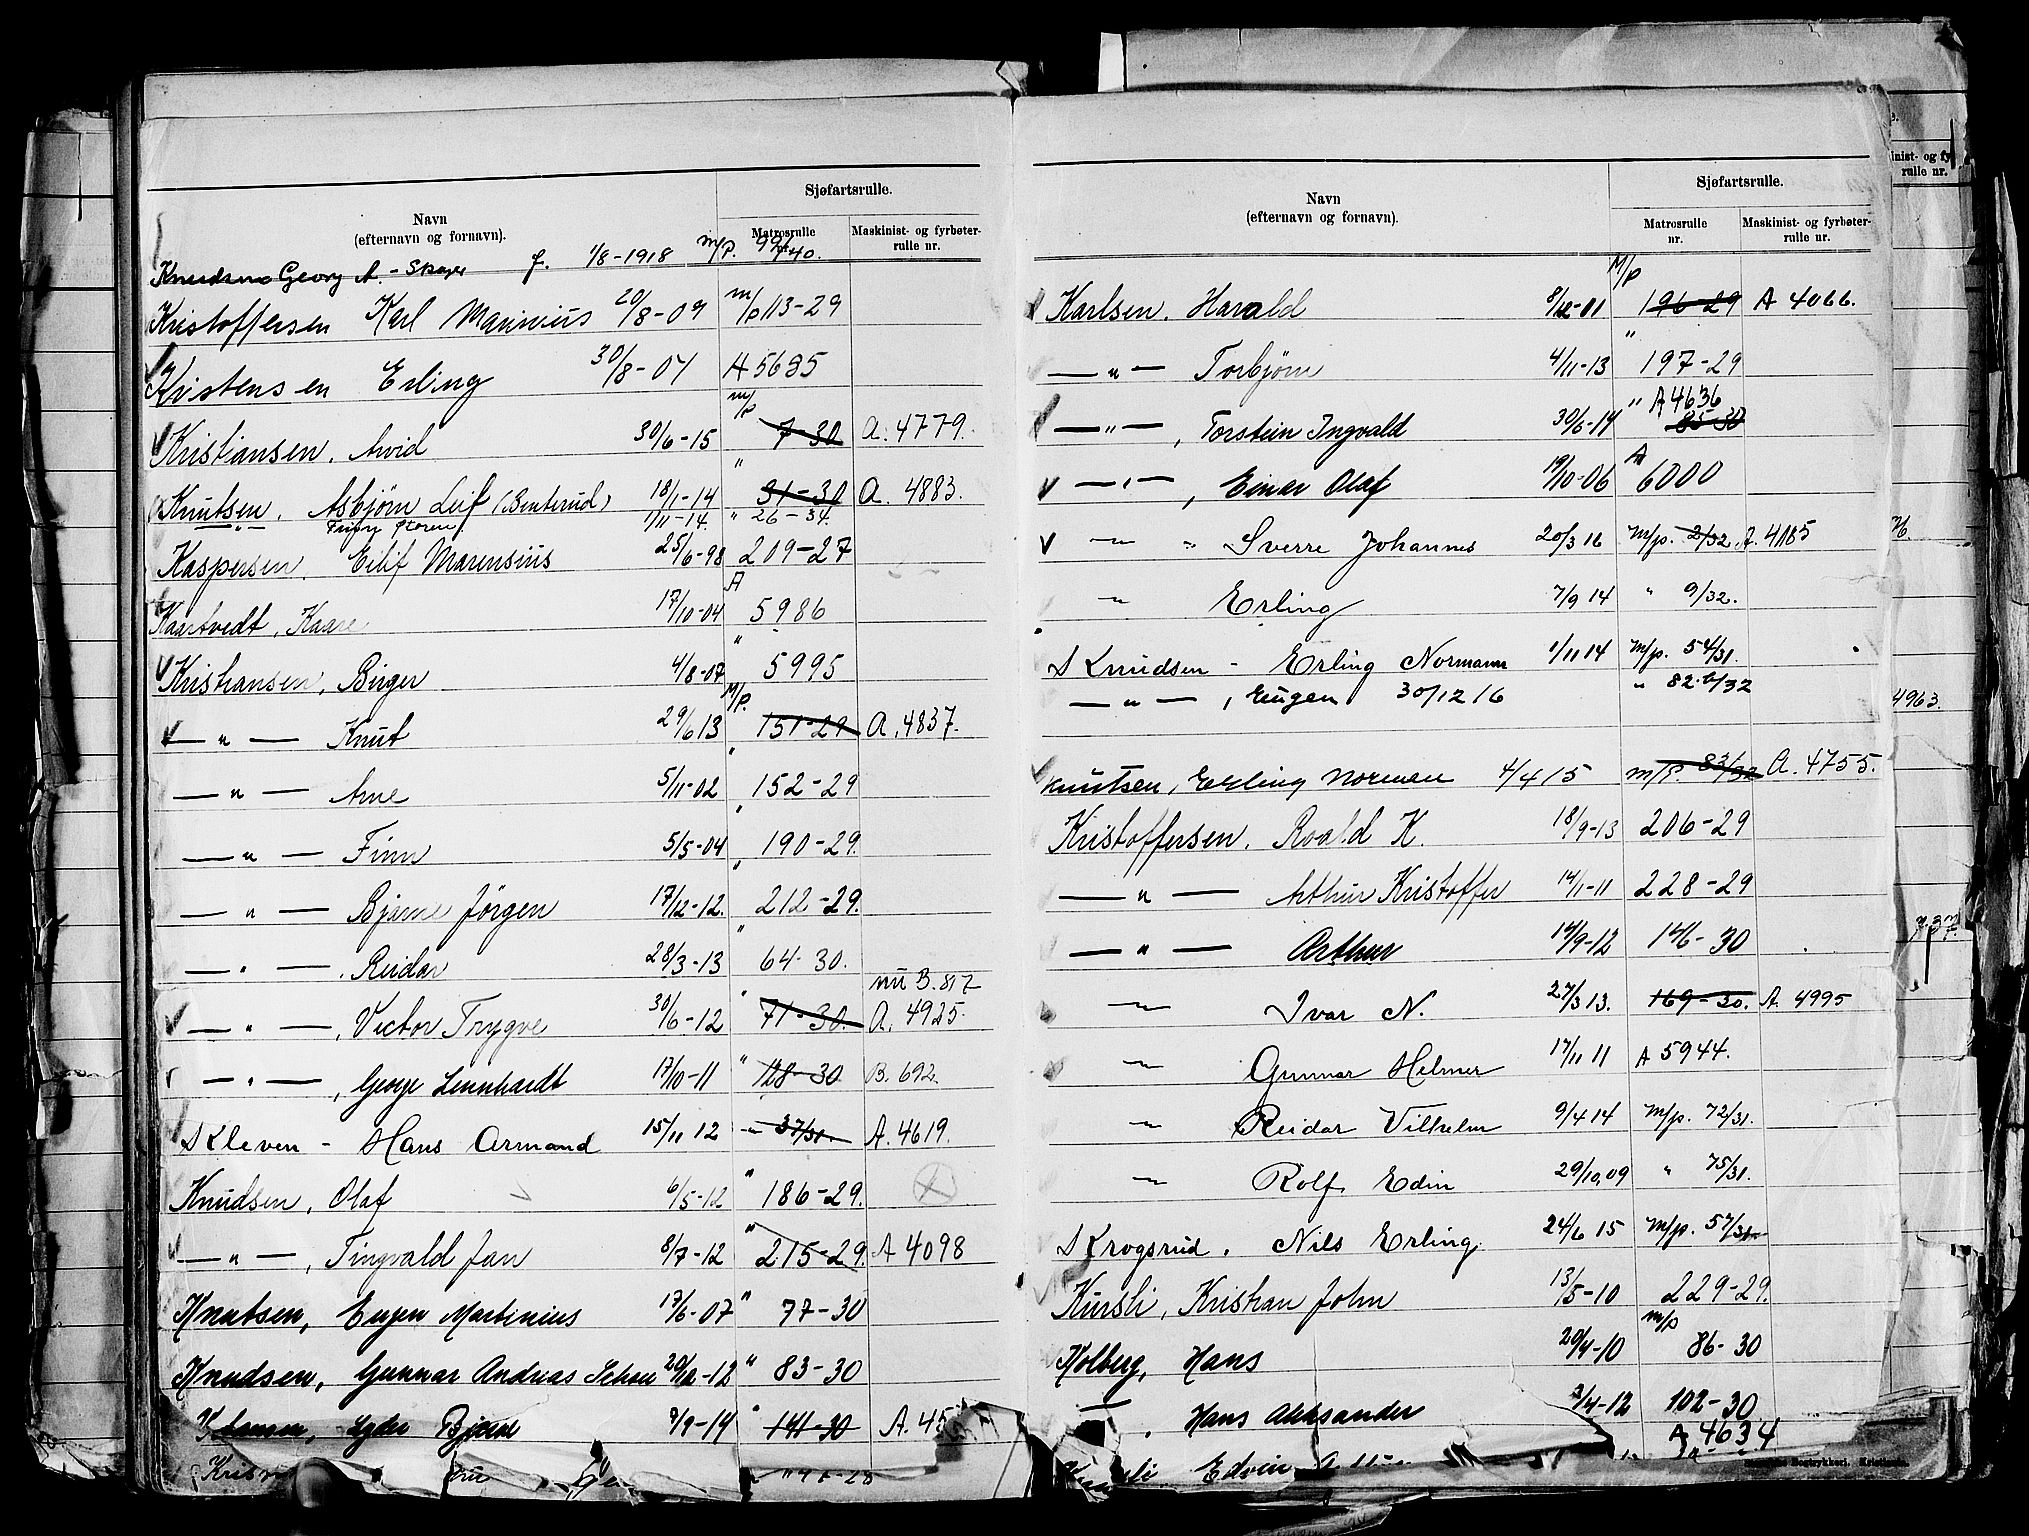 Sjøfartsrulle.
Navn
(efternavn og fornavn).
Matrosrulle
Maskinist- og fyrbøter-
rulle nr.
Knudsen Georg A. - Skager f. 1/8-1918 m/p.
Kristoffersen Karl Marinius 20/8-09 m/p 113-29
Kristensen Erling 30/8-04 A 5635
Kristiansen, Arvid 30/6-15 m/p 7-30 A. 4779.
Knutsen, Asbjørn Leif (Benterud) 18/1-14 " 31-30 A. 4883.
—"— 1/11-14. " 26-34.
Kaspersen, Eilif Marensius 25/6-98 209-27
Kaartvedt, Kaare 17/10-04 A 5986
Kristiansen, Birger 4/8-07 " 5995
— " — Knut 29/6 13 M/P. 151-29 A. 4837.
— " — Arne 5/11-02 " 152-29
— " — Finn 5/5-04 " 190-29.
— " — Bjarne Jörgen 17/12-12. " 212-29.
— " — , Reidar 28/3-13 " 64-30.
nu B. 817
— " — , Victor Trygve 30/6-12 " 71-30. A. 4925.
— " — , George Lennhardt 17/10-11 " 128-30 B. 692.
Kleven - Hans Armand 15/11 12 " 37/31. A. 4619.
Knudsen, Olaf 6/5-12 " 186-29.
— " — , Tingvald Jan 8/7-12 " 215-29. A 4098
Knutsen, Eugen Martinius 17/6-07 " 77-30
Knudsen, Gunnar Andreas Schou 20/12-12 " 83-30
Bjarne 7/9-14 " 141-30 A. 45
Sjøfartsrulle.
Navn
(efternavn og fornavn).
Matrosrulle
nr.
Maskinist- og fyrbøter-
rulle nr.
Karlsen, Harald 8/12-01 M/p 196-29 A 4066.
— " — Torbjørn 4/11-13 " 197-29
— " — , Torstein Ingvald 30/6-14 " A 4636 85-30
— " — , Einar Olaf 19/10-06 A 6000
— " Sverre Johannes 20/3 16 M/p. 2/32 A. 4185
— Erling 7/9 14 " 9/32.
Knudsen - Erling Normann 1/11 14 M/p. 54/31.
— " — , Eugen 30/12 16 " 82/32
Knutsen, Erling Norman 4/4 15 m/p. 83/32 A. 4755.
Kristoffersen, Roald K. 18/9-13 206-29
— " — Arthur Kristoffer 14/1-11 228-29
— " — Arthur 14/9-12 146-30
— Ivar N. 27/3 13. 169-30. A. 4995
— Gunnar Helmer 17/11 11 A 5944.
— Reidar Vilhelm 9/4 14 M/p. 72/31.
— Rolf Edin 29/10,09 " 75/31.
Krogsrud, Nils Erling 24/6 15 M/p. 57/31
Kursli, Kristian John 13/5-10 229-29.
Kolberg, Hans 20/4-10 m/p 86-30
— , Hans Aleksander 3/4-12 102-30
Edvin A 4634
inist- og fy
rulle nr.
4963.